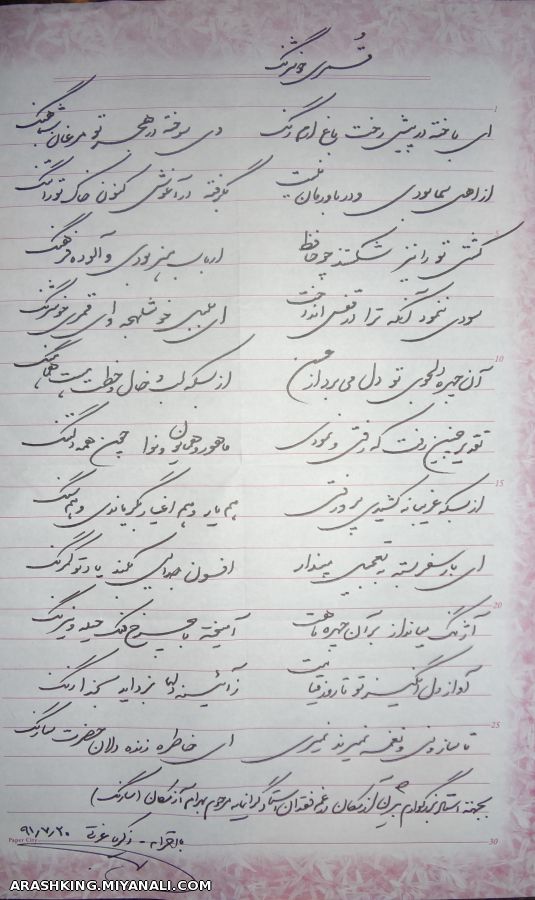 قمری خوشرنگ
ای باخته در پیش رخت باغ ارم رنگ وی سوخته در هجر تو مرغان شباهنگ
از اهل سما بودی و در باور ما نیست بگرفته در آغوش کنون خاک تو را تنگ
کشتی تو را نیز شکستند چو حافظ ارباب هنر بودی و آلوده فرهنگ
سودی ننمود آنکه ترا در قفس انداخت ای بلبل خوش لهجه و ای قمری خوشرنگ
آن چهره دلجوی تو دل می برد از عین از بسکه لب و خال و خطت هست هماهنگ
تقدیر چنین رفت که رفتی و نمودی ماهور و همایون و نوا چون همه دلتنگ
از بسکه غریبانه کشیدی پر و رفتی هم یار و هم اغیار بگریاندی و هم سنگ
ای بار سفر بسته به تعجیل مپندار افسون جدایی بکند یاد تو کمرنگ
آژنگ میانداز بر آن چهره ماهت آمیخته با چرخ فلک حیله و نیرنگ
آواز دل انگیز تو تا روز قیامت ز آئینه دلها نزداید بخدا زنگ
تا ساز و نی و نغمه نمیرند نمیری ای خاطره زنده دلان حضرت سارنگ
بجهة استاد بزرگوارم بیژن آژنگان در غم فقدان استاد گرانمایه مرحوم بهرام آژنگان (سارنگ)
بااحترام - زکریا عزتی ۹۱/۷/۲۰
Paper City
1
5
10
15
20
25
30
ARASHKING.MIYANALI.COM